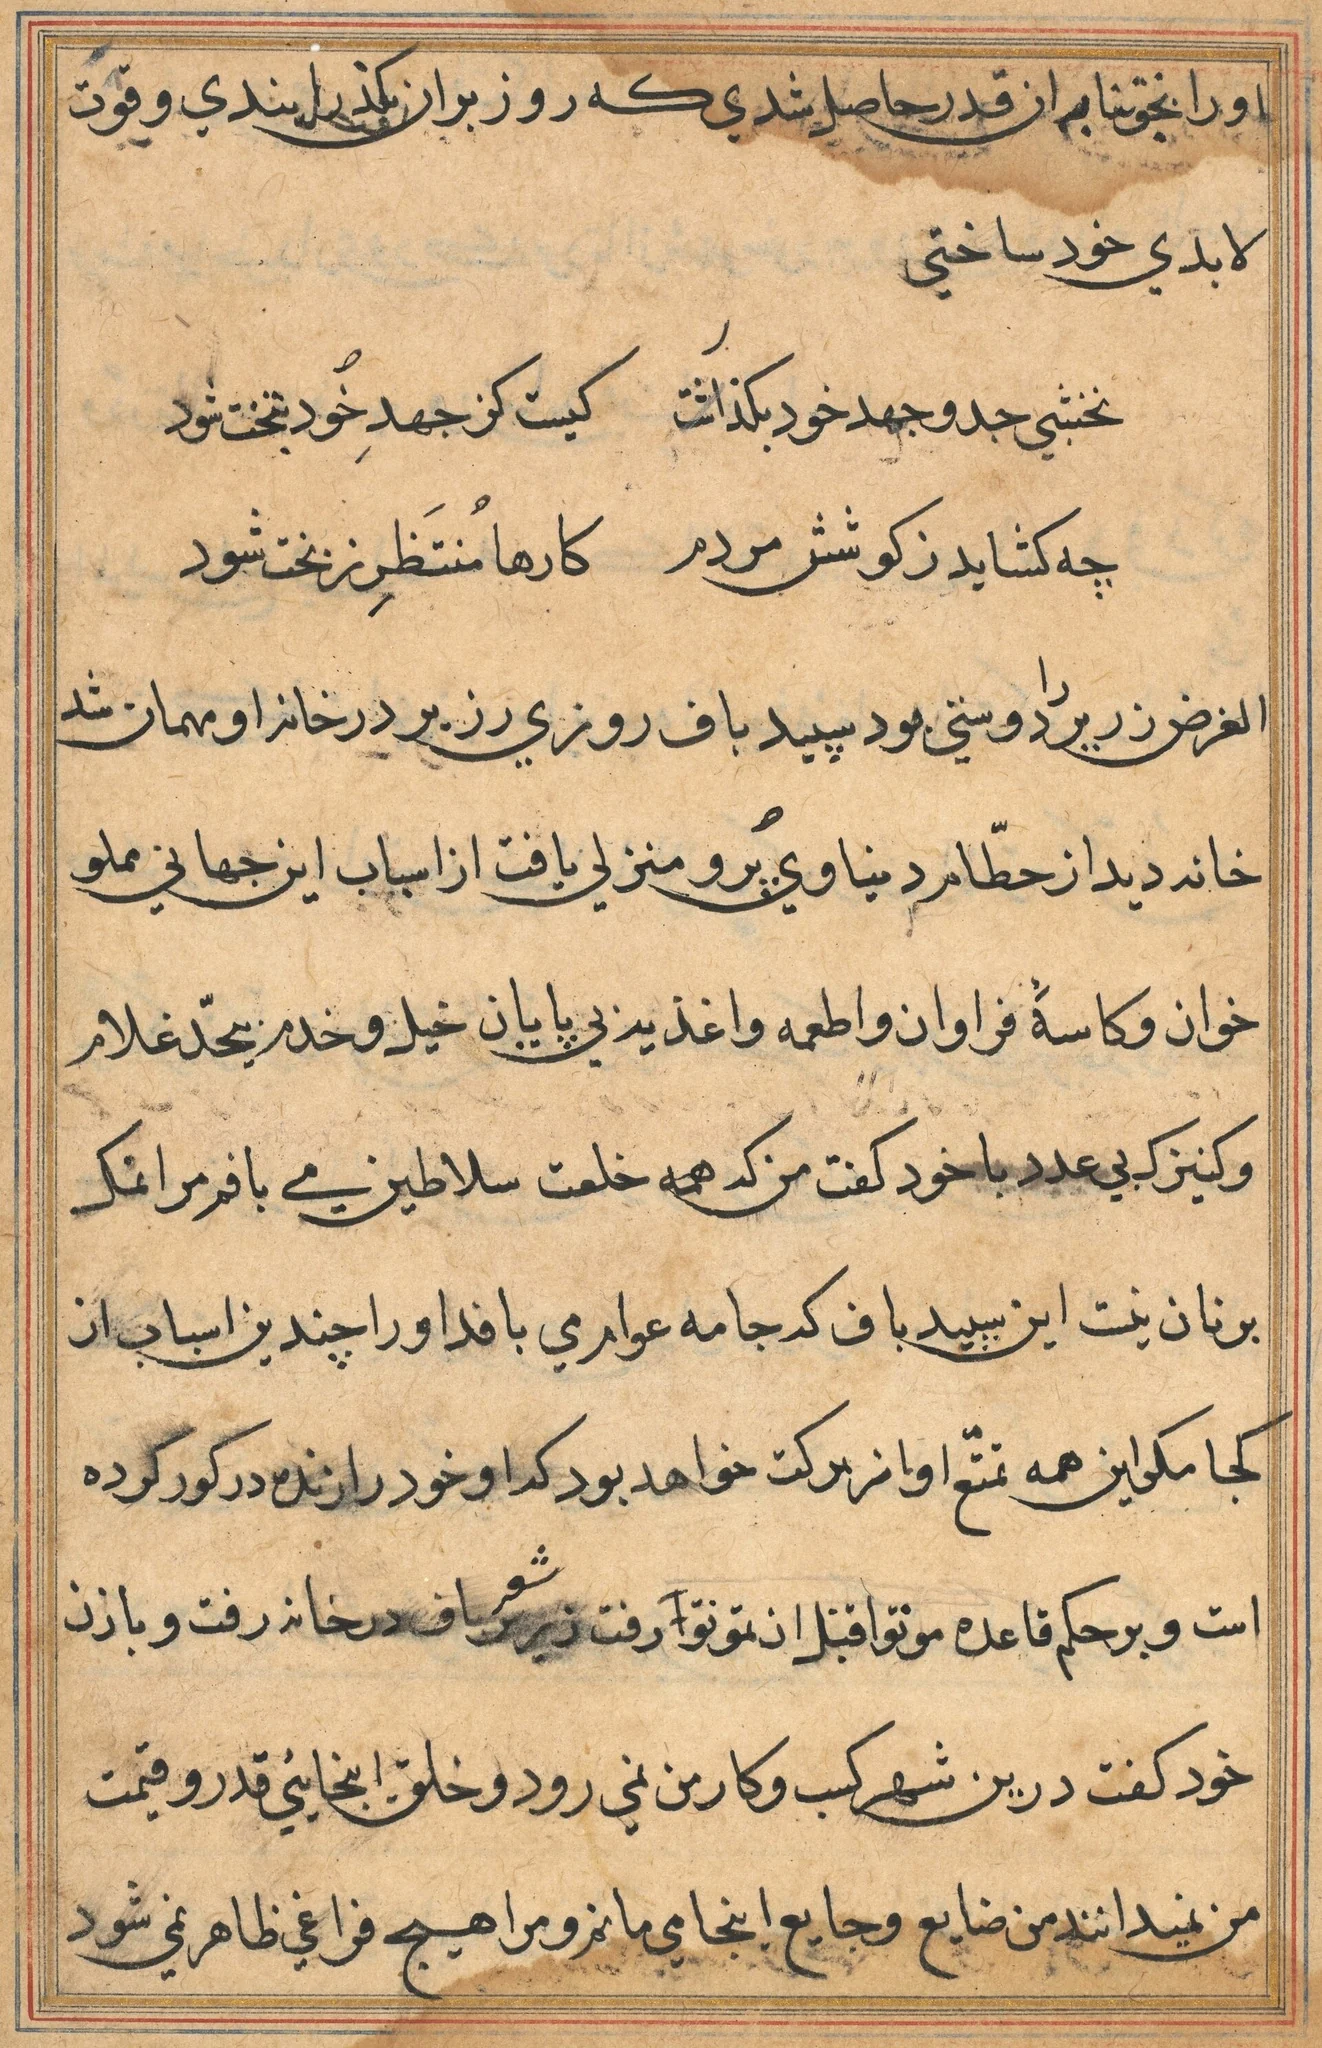 او را بحق بنا بر ان قدر حاصل شدي كه روز بران بكذرانيدي و قوت
لا بدي خود ساختي
نخشبي جد و جهد خود بكذاشت كيست كز جهدِ خُود بتخت شود
چه كشايد ز كوشش مردم كارها مُنتَظَرِ ز بخت شود
الغرض زرير را دوستي بود سپيد باف روزي زرير در خانه او مهمان شد
خانه ديد از حطّام دنياوي پُر و منزلي يافت از اسباب اين جهاني مملو
خوان و كاسهٔ فراوان و اطعمه و اغذيه بي پايان خيل و خدم بيحدّ غلام
و كنيزك بي عدد با خود كفت من كه همه خلعت سلاطين مي بافم مرا نمك
بر نان نيست اين سپيد باف كه جامه عوام مي بافد او را چندين اسباب از
كجا مكر اين همه تمتّع او از بركت خواهد بود كه او خود را زنده در كور كرده
است و بر حكم قاعده موتوا قبل ان تموتوا رفت زرير شعر باف در خانه رفت و با زن
خود كفت درين شهر كسب و كار من نمي رود و خلق اينجايئي قدر و قيمت
من نميدانند من ضايع و جايع اينجا مي مانم و مرا هيچ فراغي ظاهر نمي شود